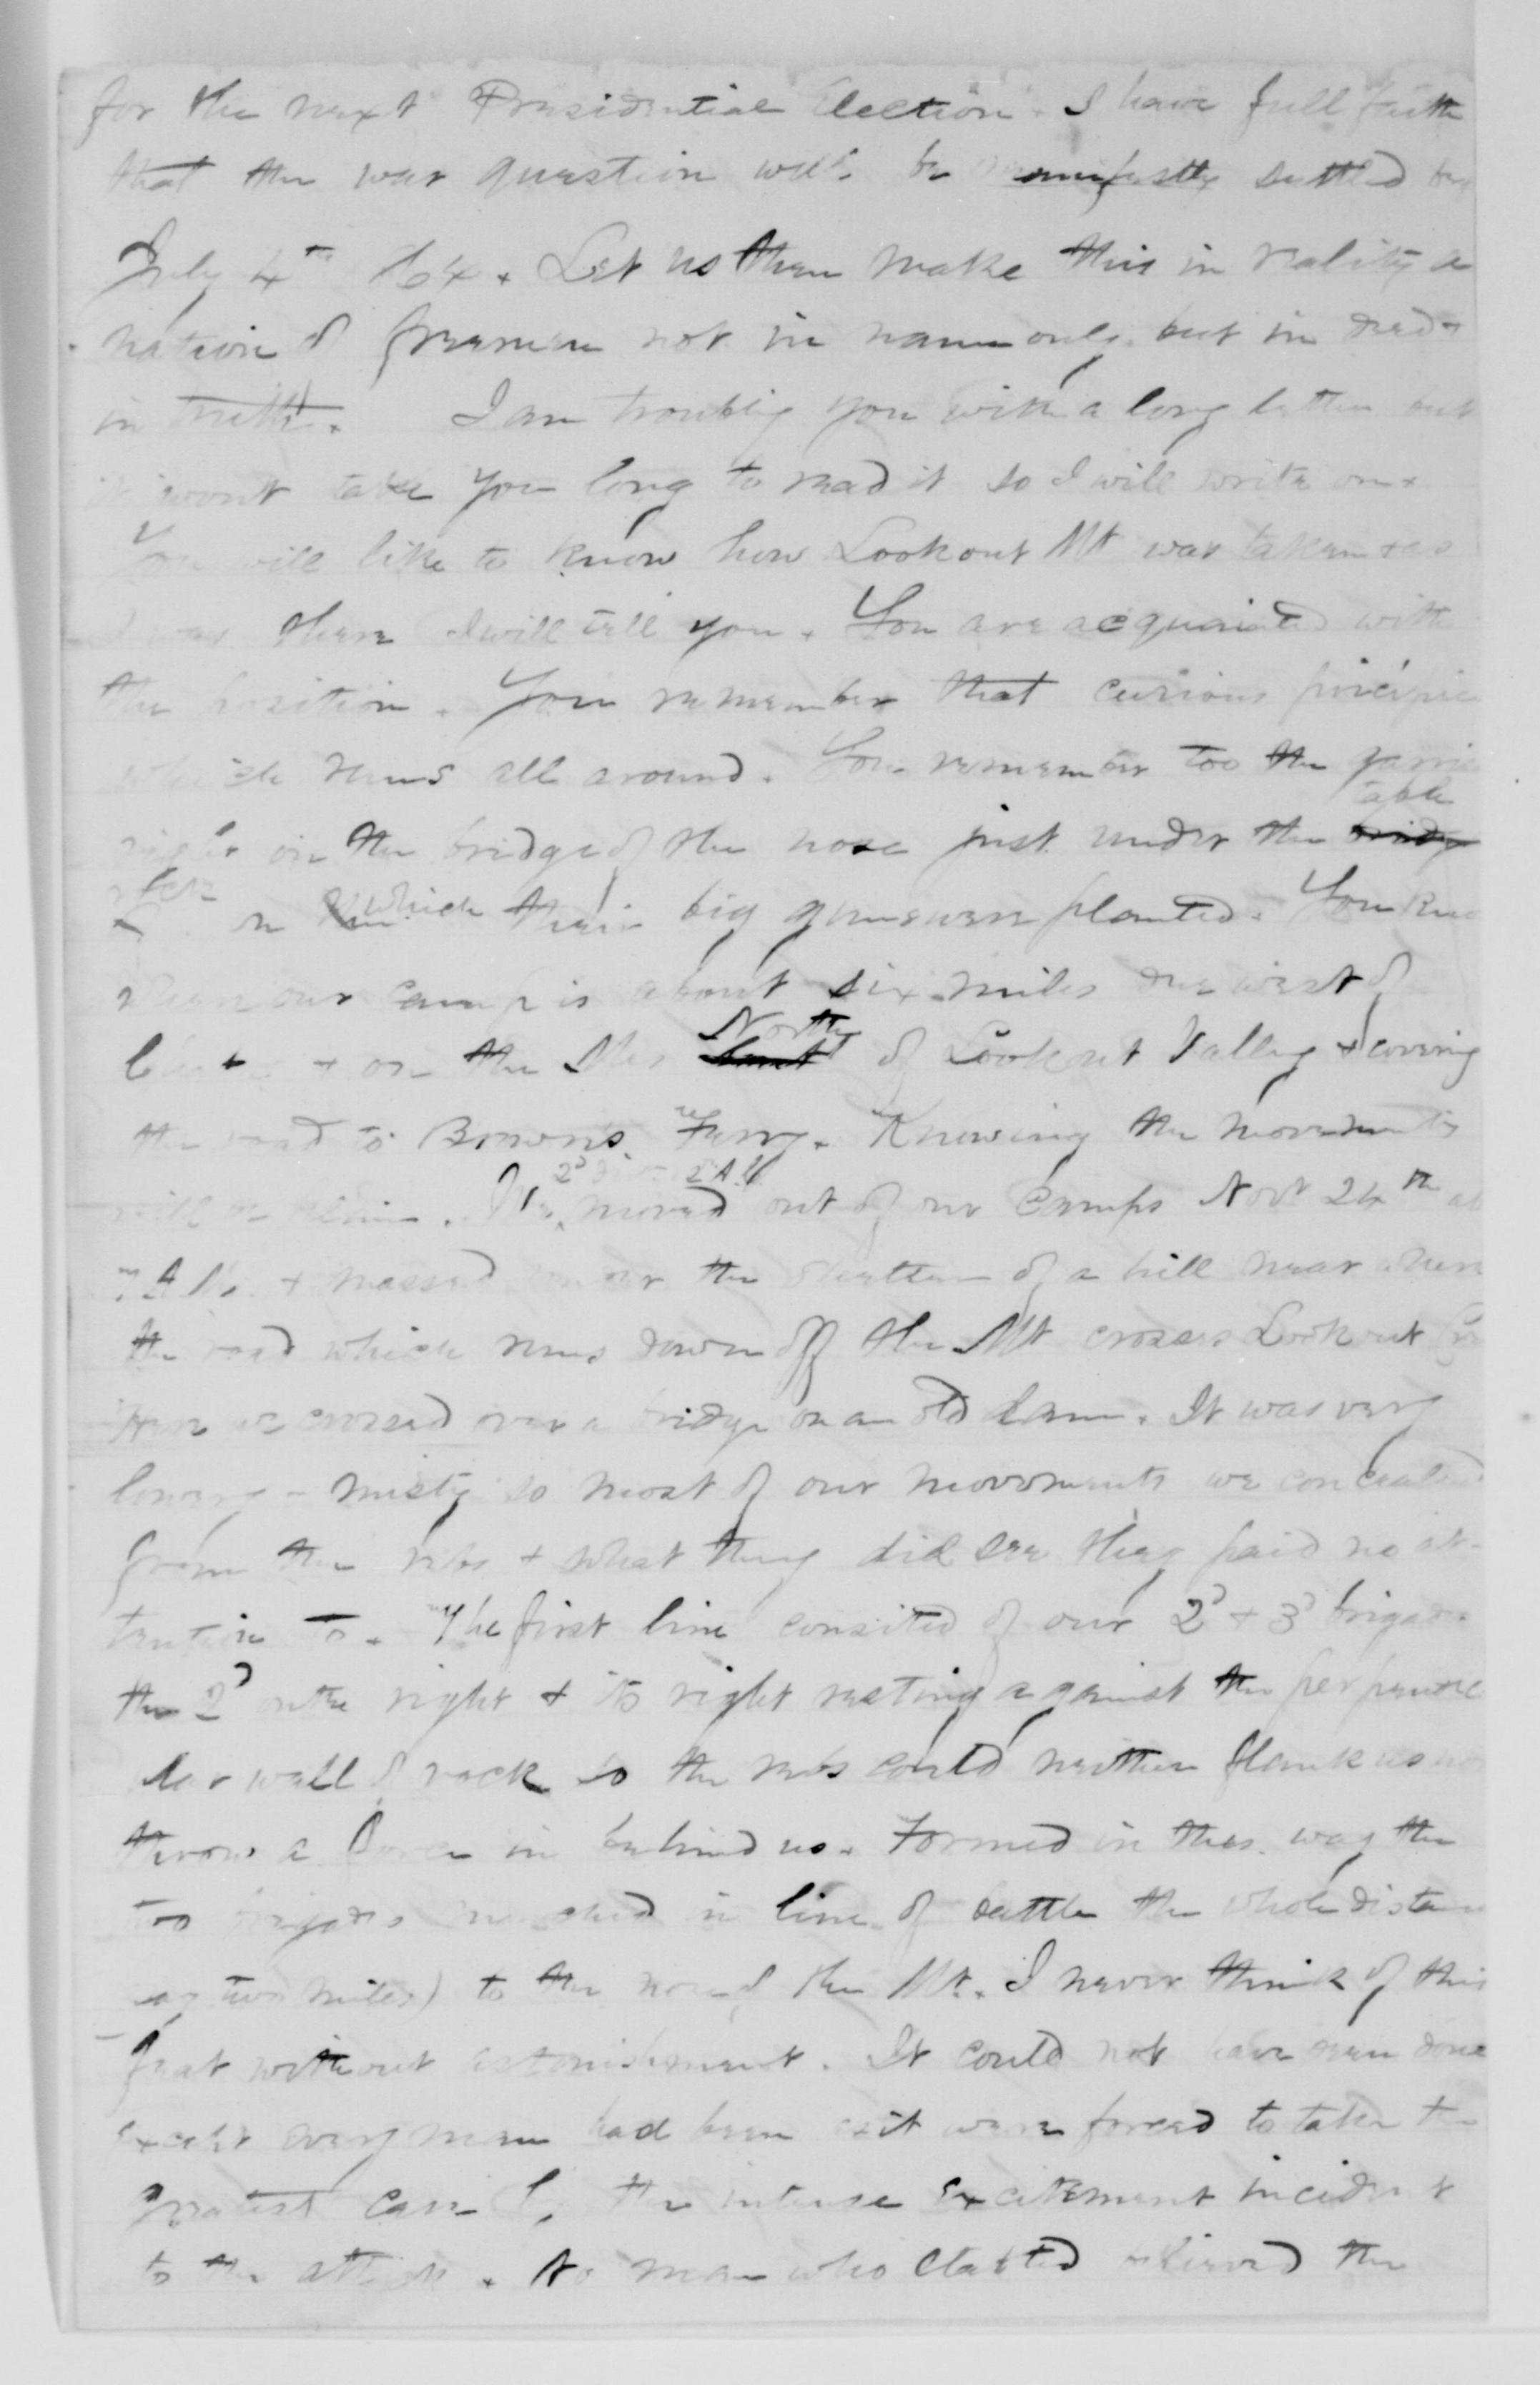 for the next Presidential Election. I have full faith
that the war question will be manifestly settled by
July 4th 64. Let us then make this in reality a
nation of freemen not in name only but in deed &
in truth. I am troublig you with a long letter but
it wont take you long to read it so I will write on.
You will like to know how Lookout Mt was taken & as
I was there I will tell you. You are acquainted with
the position. You remember that curious
which runs all around. You remember too the
right on the bridge of the nose just under the table
rock on which their big guns were planted. You know
where our camp is about six miles due west of
& on the North of Lookout Valley & covering
the road to Brown's Ferry. Knowing the movements
We 2d moved out of our Camps Nov 24th at
A.M. & massed under the shelter of a hill near where
the road which runs down off the Mt crosses Lookout
Here we crossed over a bridge on an old dam. It was very
lowery - misty so most of our movements we concealed
from the rebs & what they did see they paid no at-
tention to. The first line consited of our 2d & 3d brigades
the 2d on the right & its right resting against the perpendic
lar wall of rock so the rebs could neither flank us nor
throw a force in behind us. Formed in this way the
two brigades marched in line of battle the whole distance
two miles) to the nose of the Mt. I never think of this
feat without astonishment. It could not have been done
except every man had been as it were forced to take the
greatest care by the intense excitement incident
to the attack. No man who started believed the